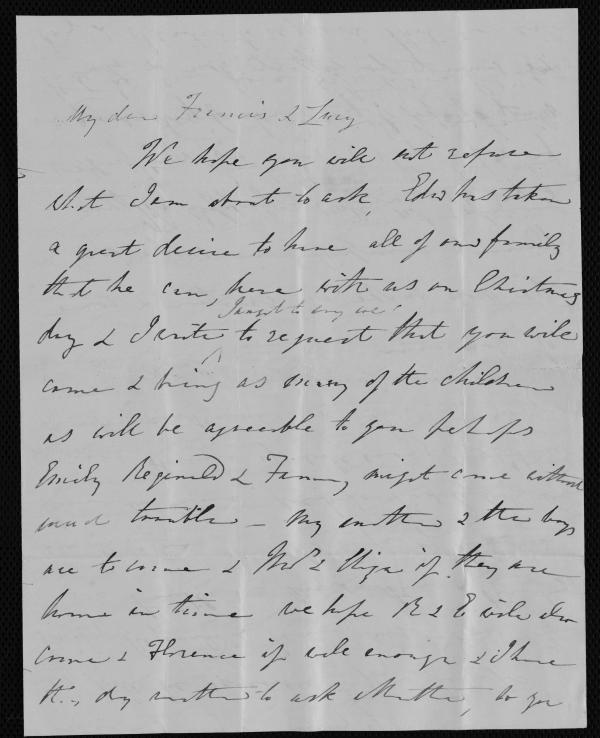 My dear Francis & Lucy
We hope you will not refuse
what I am about to ask, Edw has taken
a great desire to have all of our family
that he can, here with us on Christmas
I ought to say we
day & I write to request that you will
come & bring as many of the children
as will be agreeable to you perhaps
Emily Reginald & Fanny might come without
much trouble – My mother & the boys
are to come & & Eliza if they are
home in time we hope R & E will also
come & Florence if well enough & I have
this day written to ask Martha, so you